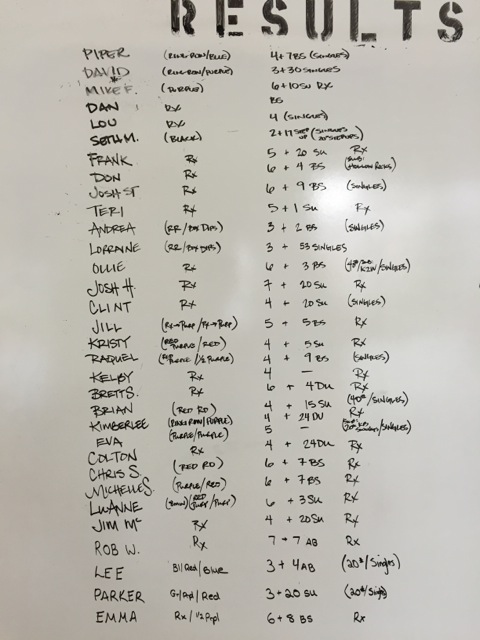 RESULTS
PIPER (RING ROW/BLUE) 4+7BS (SINGLES)
DAVID (RING ROW/PURPLE) 3+30 SINGLES
MIKE F. (PURPLE) 6+10SU RX
DAN RX BS
LOU RX 4 (SINGLES)
SETH M. (BLACK) 2+17 STEP UP (SINGLES
FRANK Rx 5 + 20 SU Rx
DON Rx 6 + 4 BS (HOLLOW ROCKS)
JOSH ST Rx 6 + 9 BS (SINGLES)
TERI Rx 5 + 1 SU Rx
ANDREA (RR/BOX DIPS) 3 + 2 BS (SINGLES)
LORRAINE (RR/BOX DIPS) 3 + 53 SINGLES
OLLIE Rx 6 + 3 BS /SINGLES)
JOSH H. Rx 7 + 20 SU Rx
CLINT Rx 4 + 20 SU (SINGLES)
JILL 5 + 5 BS Rx
KRISTY PURPLE/RED) 4 + 5 SU Rx
RAQUEL PURPLE/½ PURPLE) 4 + 9 BS (SINGLES)
KELBY Rx 4 — Rx
BRETT S. Rx 6 + 4 DU Rx
BRIAN (RED RD) 4 + 15 SU (40#/SINGLES)
KIMBERLEE (RING ROW/PURPLE) 4 + 24 DU Rx
EVA (PURPLE/PURPLE) 5 — /SINGLES)
COLTON Rx 4 + 24 DU Rx
CHRIS S. (RED RD) 6 + 7 BS Rx
MICHELLE S. (PURPLE/RED) 6 + 7 BS Rx
LUANNE 6 + 3 SU Rx
JIM Mc Rx 4 + 20 SU Rx
ROB W. Rx 7 + 7 AB Rx
LEE Bl/Red/Blue 3 + 4 AB (20#/Singles)
PARKER Red 3 + 20 SU (20#/Singles)
EMMA Rx / ½ Prpl 6 + 8 BS Rx